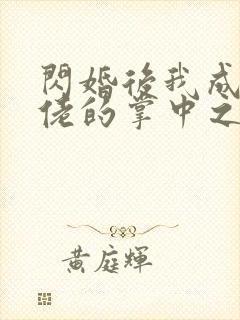 閃婚後我成
佬的掌中之
黃庭輝